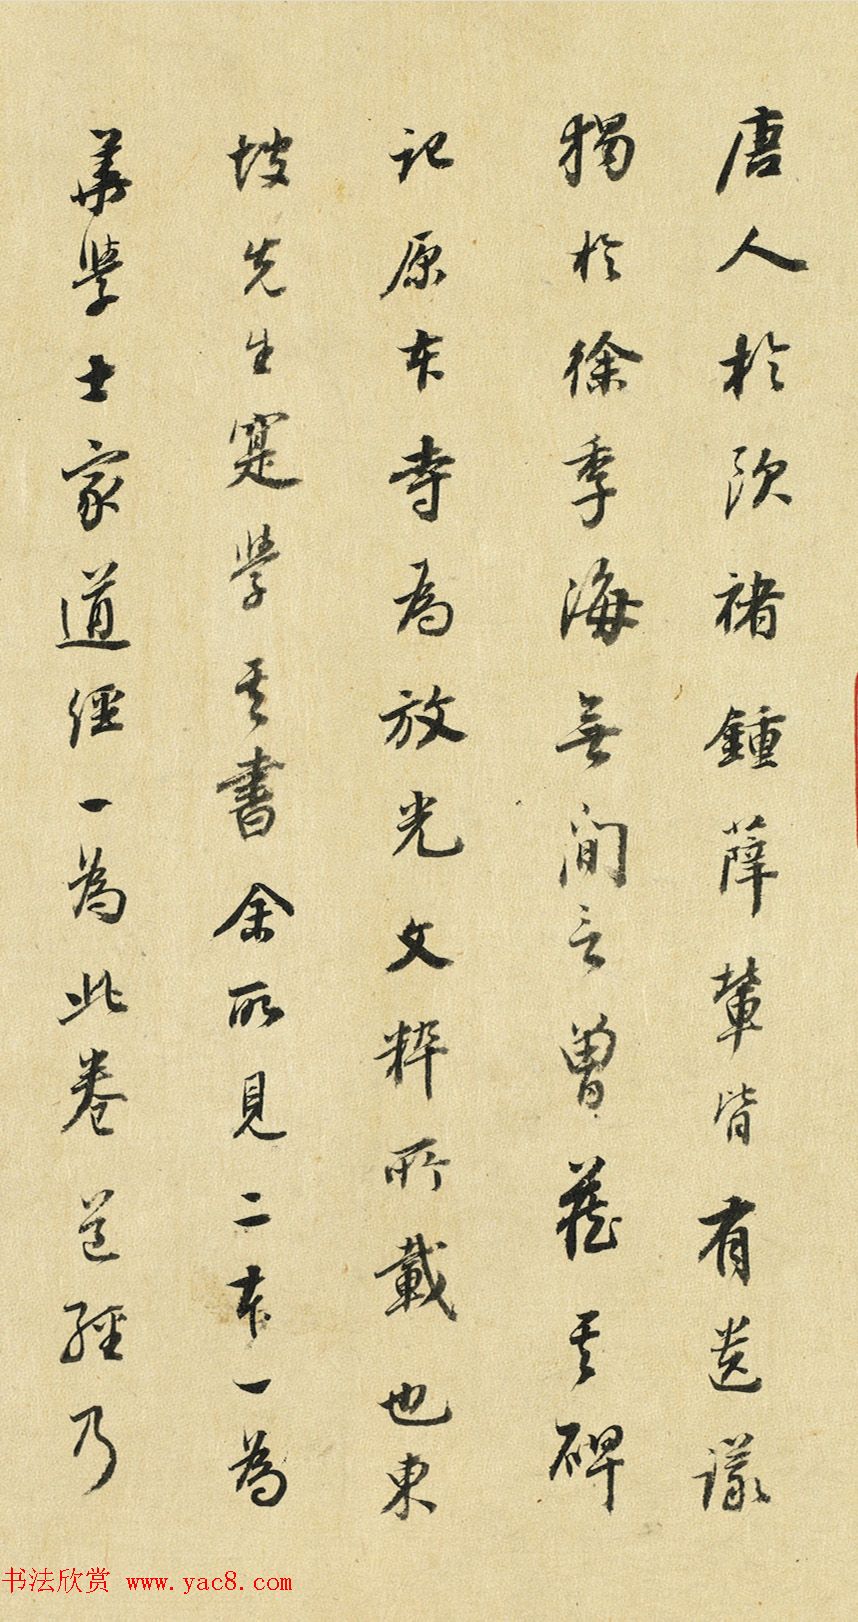 唐人於欧褚鍾薛輩皆有遺議
獨於徐季海無間言曾藏其碑
記原本寺為放光文粹所載也東
坡先生寔學其書余所見二本一為
華學士家道經一為此卷道經乃
书法欣赏 www.yac8.com